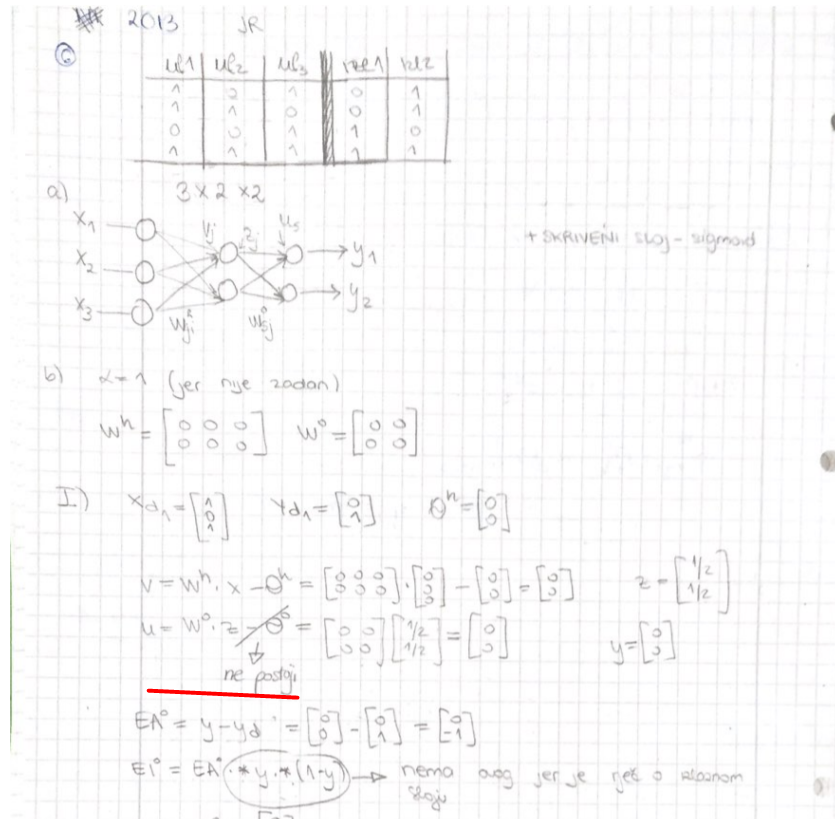 2013 JR
6
ul1 ul2 ul3 izl1 izl2
1 0 1 0 1
1 1 0 0 1
0 0 1 1 0
1 1 1 1 1
a) 3 x 2 x 2
x₁ Vj zj us → y₁
x₂ → y₂
x₃ Wʰji Wᵒsj
+ SKRIVENI sloj - sigmoid
b) α = 1 (jer nije zadan)
Wʰ = [0 0 0; 0 0 0] Wᵒ = [0 0; 0 0]
I) Xd₁ = [1; 0; 1] Yd₁ = [0; 1] Θʰ = [0; 0]
V = Wʰ · x - Θʰ = [0 0 0; 0 0 0] · [0; 0; 0] - [0; 0] = [0; 0] z = [1/2; 1/2]
u = Wᵒ · z - Θᵒ = [0 0; 0 0] [1/2; 1/2] = [0; 0] y = [0; 0]
ne postoji
EAᵒ = y - yd = [0; 0] - [0; 1] = [0; -1]
EIᵒ = EAᵒ .* y .* (1-y) → nema ovog jer je riječ o izlaznom
sloju